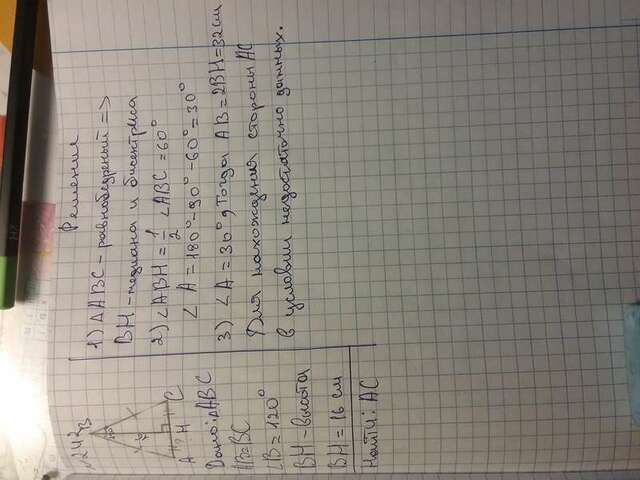 №242
B
A H C
Дано: △ABC
AB=BC
∠B = 120°
BH - высота
BH = 16 см
Найти: AC
Решения
1) △ABC - равнобедренный =>
BH - медиана и биссектриса
2) ∠ABH = 1/2 ∠ABC = 60°
∠A = 180° - 90° - 60° = 30°
3) ∠A = 30°, Тогда AB = 2BH = 32 см
Для нахождения стороны AC
в условии недостаточно данных.